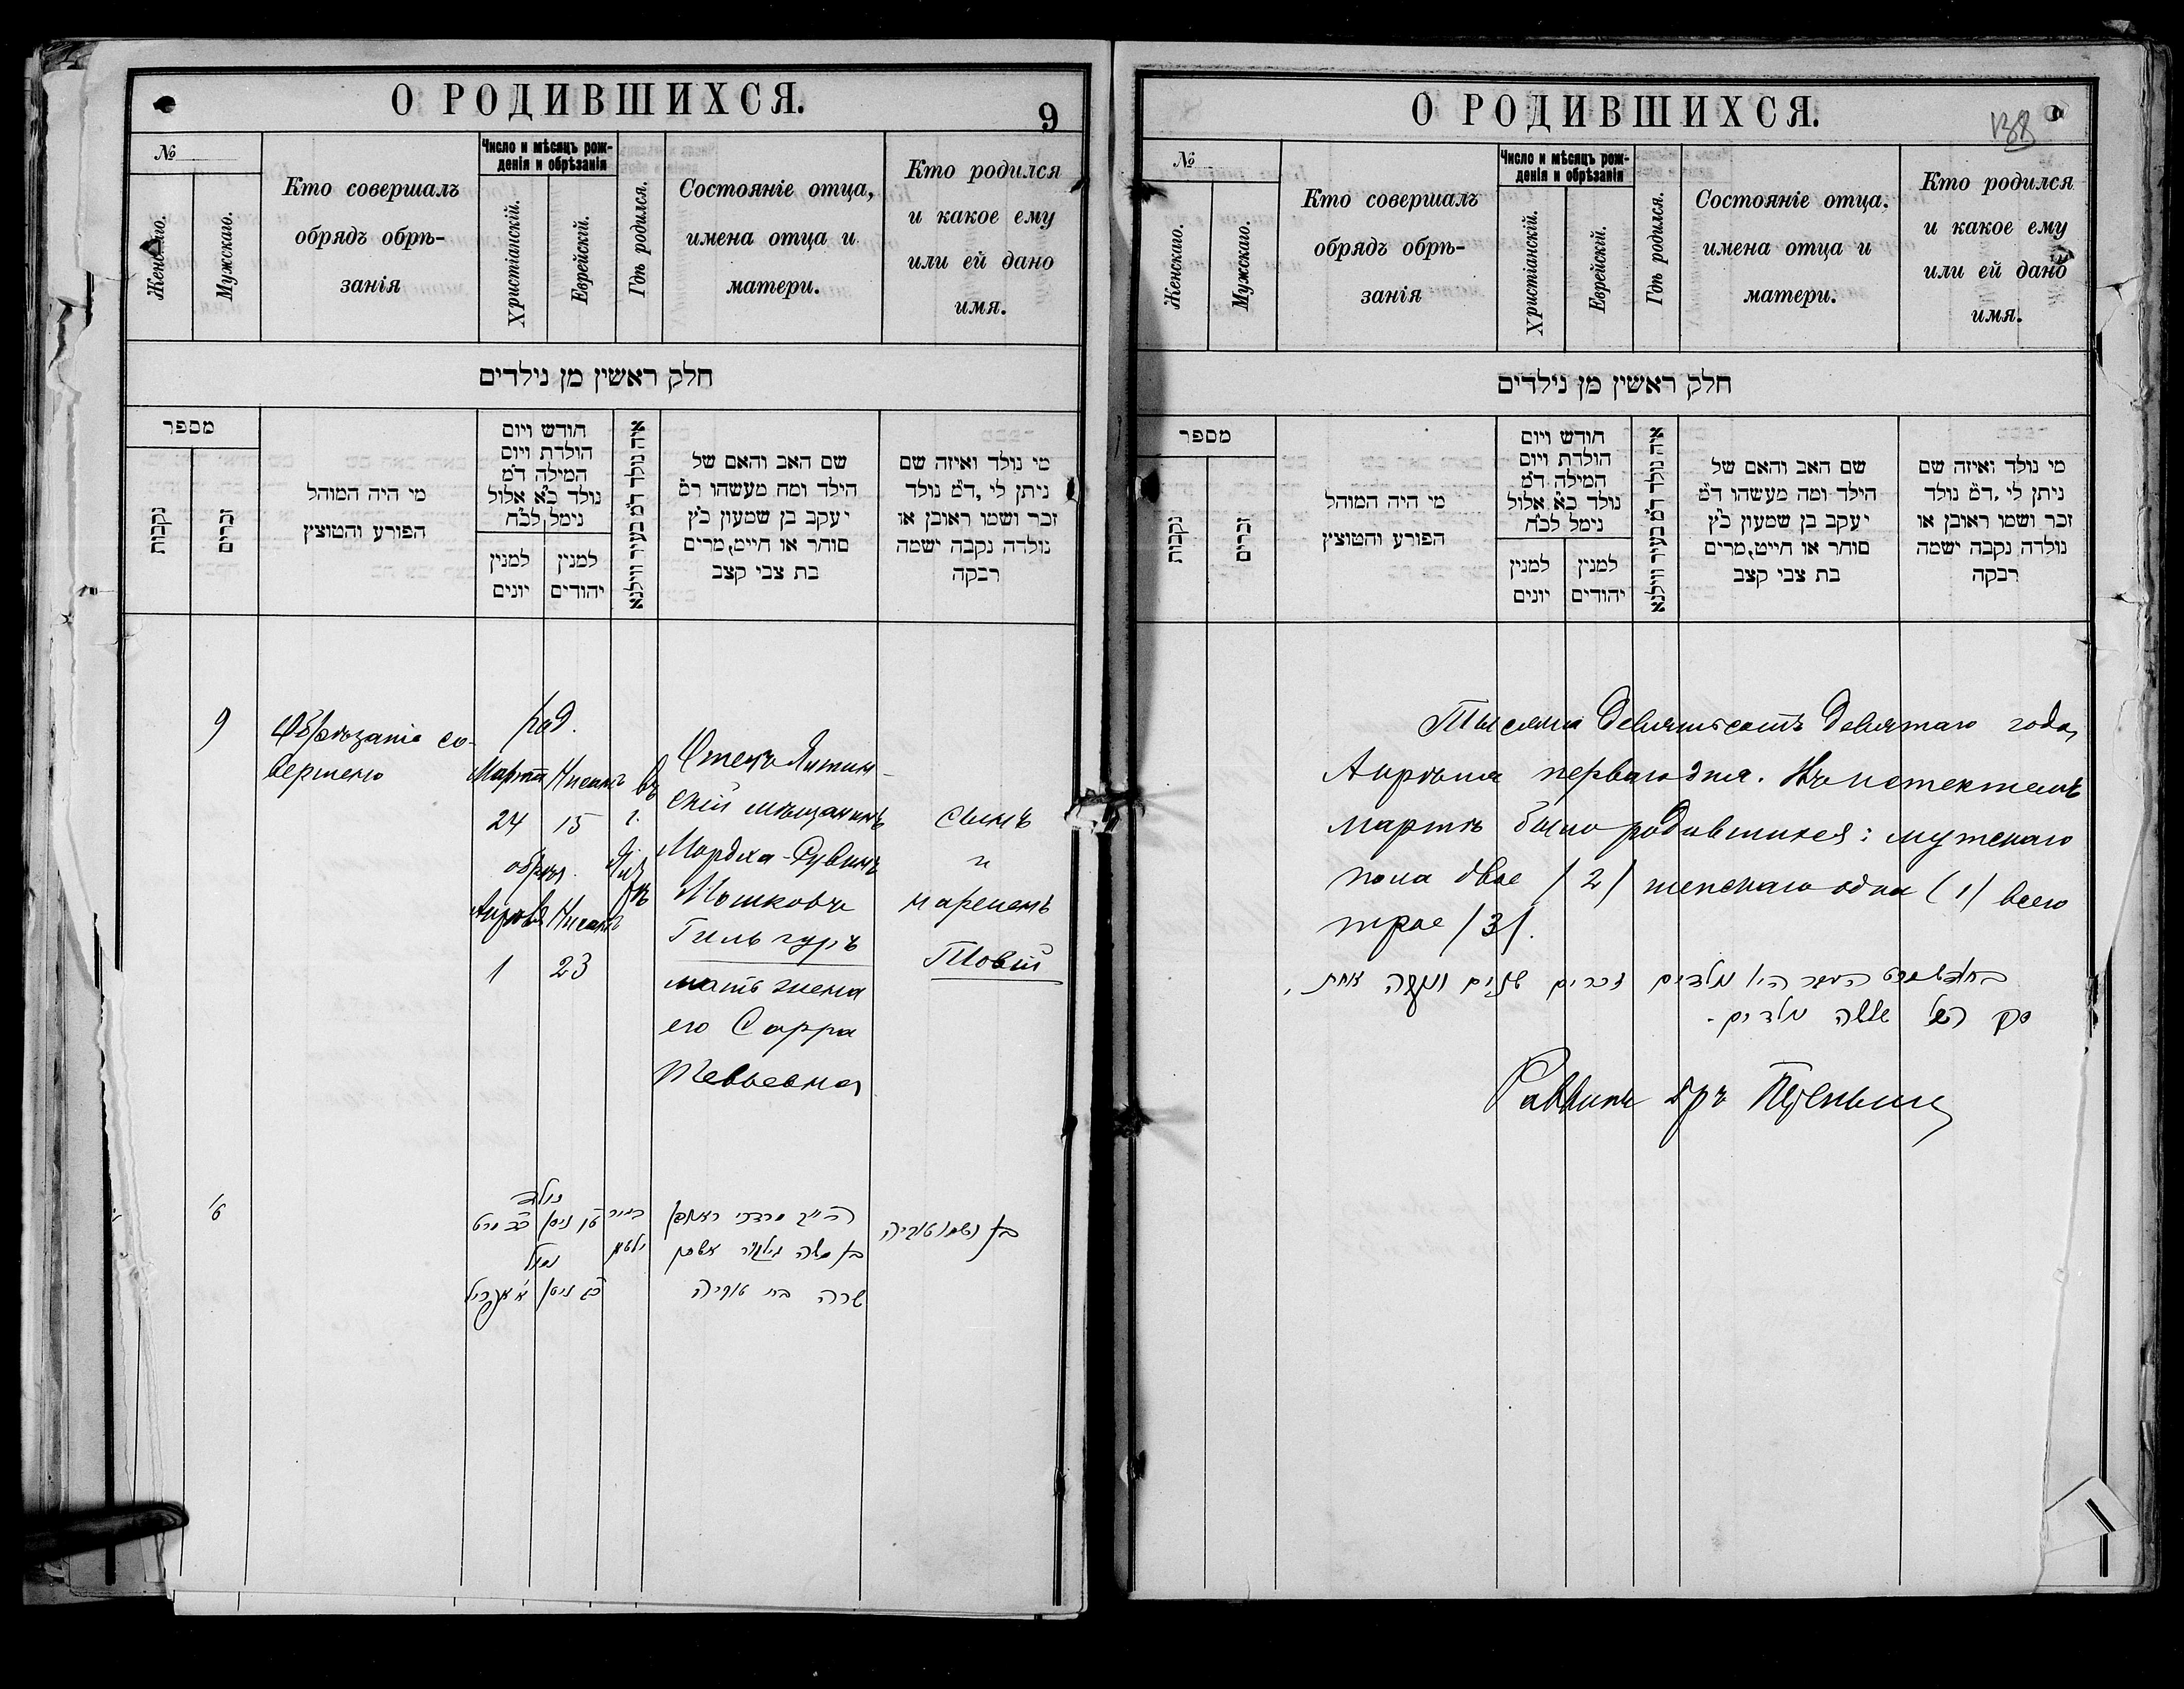 О РОДИВШИХСЯ.
9
№
Женскаго.
Мужскаго.
Кто совершалъ
обрядъ обрѣ-
занія
Число и мѣсяцъ рож-
денія и обрѣзанія
Христіанскій.
Еврейскій.
Гдѣ родился.
Состояніе отца,
имена отца и
матери.
Кто родился
и какое ему
или ей дано
имя.
חלק ראשין מן נילדים
מספר
נקבות
זכרים
מי היה המוהל
הפורע והמוצץ
חודש ויום
הולדת ויום
המילה ד״מ
נולד כ״א אלול
נימל לכ״ח
למנין
יונים
למנין
יהודים
איה נולד ד״מ בעיר ווילנא
שם האב והאם של
הילד ומה מעשהו ד״מ
יעקב בן שמעון כ״ץ
סוחר או חייט, מרים
בת צבי קצב
מי נולד ואיזה שם
ניתן לי, ד״מ נולד
זכר ושמו ראובן או
נולדה נקבה ישמה
רבקה
9
Обрѣзаніе со-
вершено
род.
Марта Нисанъ
24 15
обрѣз.
Апрѣля Нисанъ
1 23
въ
г.
Отецъ
скій мѣщанинъ
Мордха-Рувинъ
Мошковъ
Гильгуръ
мать жена
его Сарра
Тевьевна
сынъ
и
нареченъ
Товій
נולד
טו ניסן
נמול
כג ניסן א אפריל
מרדכי ראובן
בן משה
שרה בת טוביה
בן ושמו טוביה
О РОДИВШИХСЯ.
138
№
Женскаго.
Мужскаго.
Кто совершалъ
обрядъ обрѣ-
занія
Число и мѣсяцъ рож-
денія и обрѣзанія
Христіанскій.
Еврейскій.
Гдѣ родился.
Состояніе отца,
имена отца и
матери.
Кто родился
и какое ему
или ей дано
имя.
חלק ראשין מן נילדים
מספר
נקבות
זכרים
מי היה המוהל
הפורע והמוצץ
חודש ויום
הולדת ויום
המילה ד״מ
נולד כ״א אלול
נימל לכ״ח
למנין
יונים
למנין
יהודים
איה נולד ד״מ בעיר ווילנא
שם האב והאם של
הילד ומה מעשהו ד״מ
יעקב בן שמעון כ״ץ
סוחר או חייט, מרים
בת צבי קצב
מי נולד ואיזה שם
ניתן לי, ד״מ נולד
זכר ושמו ראובן או
נולדה נקבה ישמה
רבקה
Тысяча девятьсотъ девятаго года,
Апрѣля перваго дня. Въ истекшемъ
мартѣ было родившихся: мужскаго
пола двое /2/ женскаго одна (1) всего
трое /3/.
נולדים זכרים שנים ונקבה אחת.
סך הכל שלשה נולדים.
Раввинъ